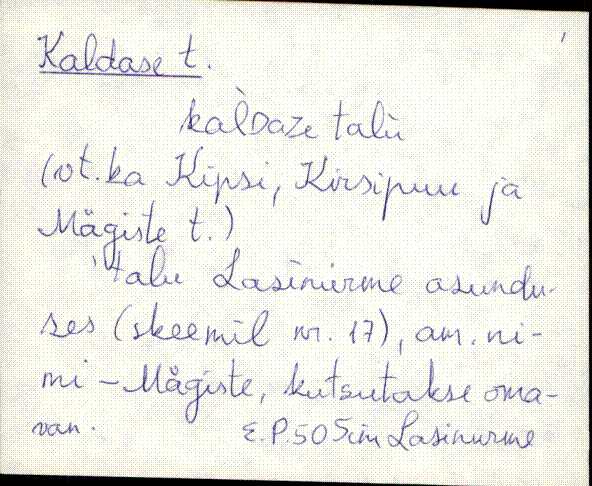 Kaldase t.
kàlDaze talù
(vt. ka Kipsi, Kirsipuu ja
Mägiste t.)
talu Lasinurme asundu-
ses (skeemil nr. 17), am. ni-
mi - Mägiste, kutsutakse oma-
van. E.P. 505 Sim Lasinurme